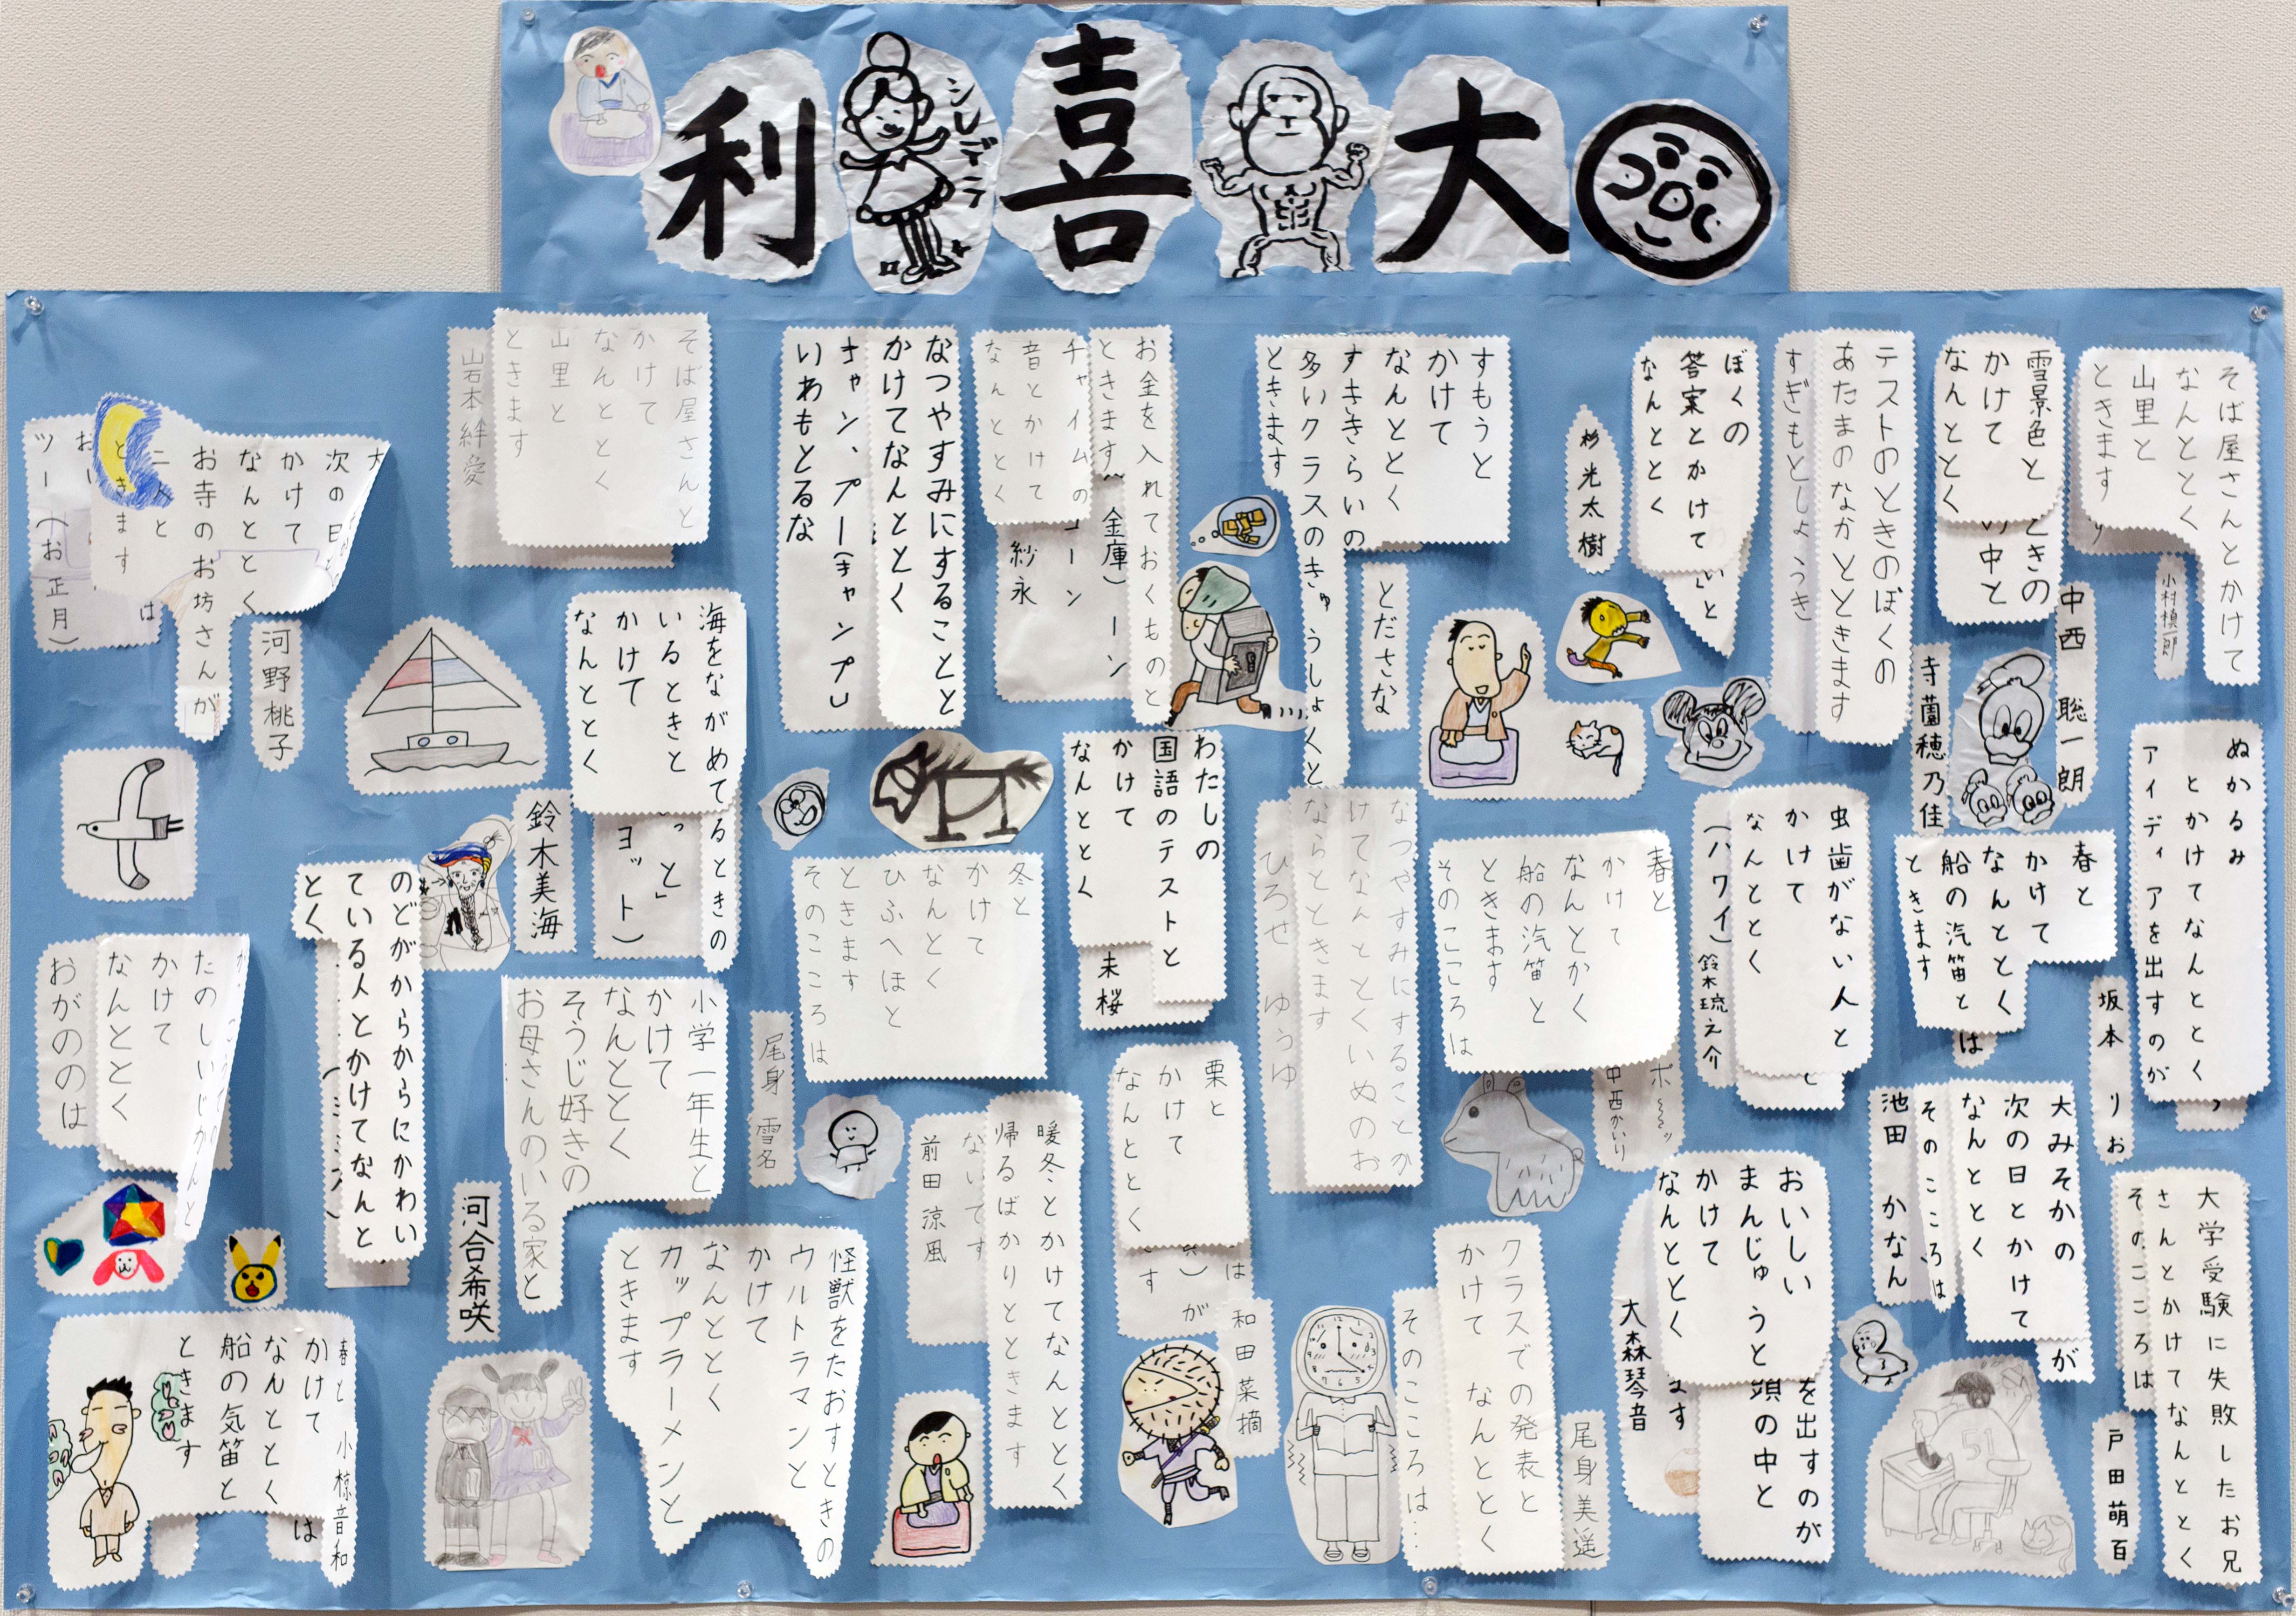 大
喜
利
シレデラ
そば屋さんとかけて
なんととく
山里と
ときます
小村槙一郎
雪景色と
かけて
なんととく
ときの
中と
中西 聡一朗
テストのときのぼくの
あたまのなかとときます
すぎもとしょうき
寺薗穂乃佳
ぼくの
答案とかけて
なんととく
杉光太樹
すもうと
かけて
なんととく
すききらいの
多いクラスのきゅうしょくと
ときます
とださな
お金を入れておくものと
ときます
金庫)
チャイムの
音とかけて
なんととく
紗永
なつやすみにすることと
かけてなんととく
キャン、プー(キャンプ)
いわもとるな
そば屋さんと
かけて
なんととく
山里と
ときます
岩本絆愛
次の日
かけて
なんととく
お寺のお坊さんが
ときます
ツー(お正月)
河野桃子
海をながめてるときの
いるときと
かけて
なんととく
っと」
ヨット)
鈴木美海
わたしの
国語のテストと
かけて
なんととく
未桜
ぬかるみ
とかけてなんととく
アイディアを出すのが
坂本 りお
春と
かけて
なんととく
船の汽笛と
ときます
は
虫歯がない人と
かけて
なんととく
(ハワイ)
鈴木琉之介
春と
かけて
なんとかく
船の汽笛と
ときます
そのこころは
中西かいり
なつやすみにすることか
けてなんととくいぬのお
ならとときます
ひろせ ゆうゆ
冬と
かけて
なんとく
ひふへほと
ときます
そのこころは
尾身 雪名
のどがからからにかわい
ている人とかけてなんと
とく
たのしいじかんと
かけて
なんととく
おがののは
小学一年生と
かけて
なんととく
そうじ好きの
お母さんのいる家と
河合希咲
大みそかの
次の日とかけて
なんととく
が
そのこころは
池田 かなん
大学受験に失敗したお兄
さんとかけてなんととく
そのこころは
戸田萌百
おいしい
まんじゅうと
かけて
なんととく
を出すのが
頭の中と
ます
大森琴音
クラスでの発表と
かけて なんととく
そのこころは…
尾身美遥
栗と
かけて
なんととく
は
が
和田菜摘
暖冬とかけてなんととく
帰るばかりとときます
ないてす
前田涼風
怪獣をたおすときの
ウルトラマンと
かけて
なんととく
カップラーメンと
ときます
春と
かけて
なんととく
船の気笛と
ときます
は
小椋音和